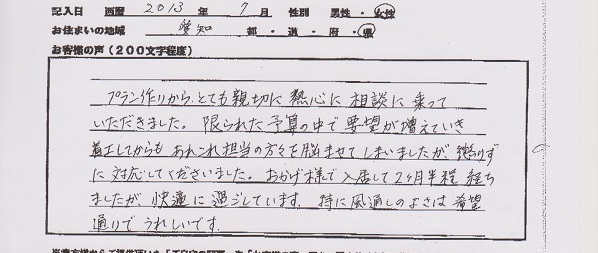 記入日 西暦 2013 年 7 月 性別 男性・女性
お住まいの地域 愛知 都・道・府・県
お客様の声（200文字程度）
プラン作りから、とても親切に熱心に相談に乗って
いただきました。限られた予算の中で要望が増えていき
着工してからもあれこれ担当の方々を悩ませてしまいましたが
に対応してくださいました。おかげ様で入居して2ヶ月半程経ち
ましたが、快適に過ごしています。特に風通しのよさは希望
通りでうれしいです。